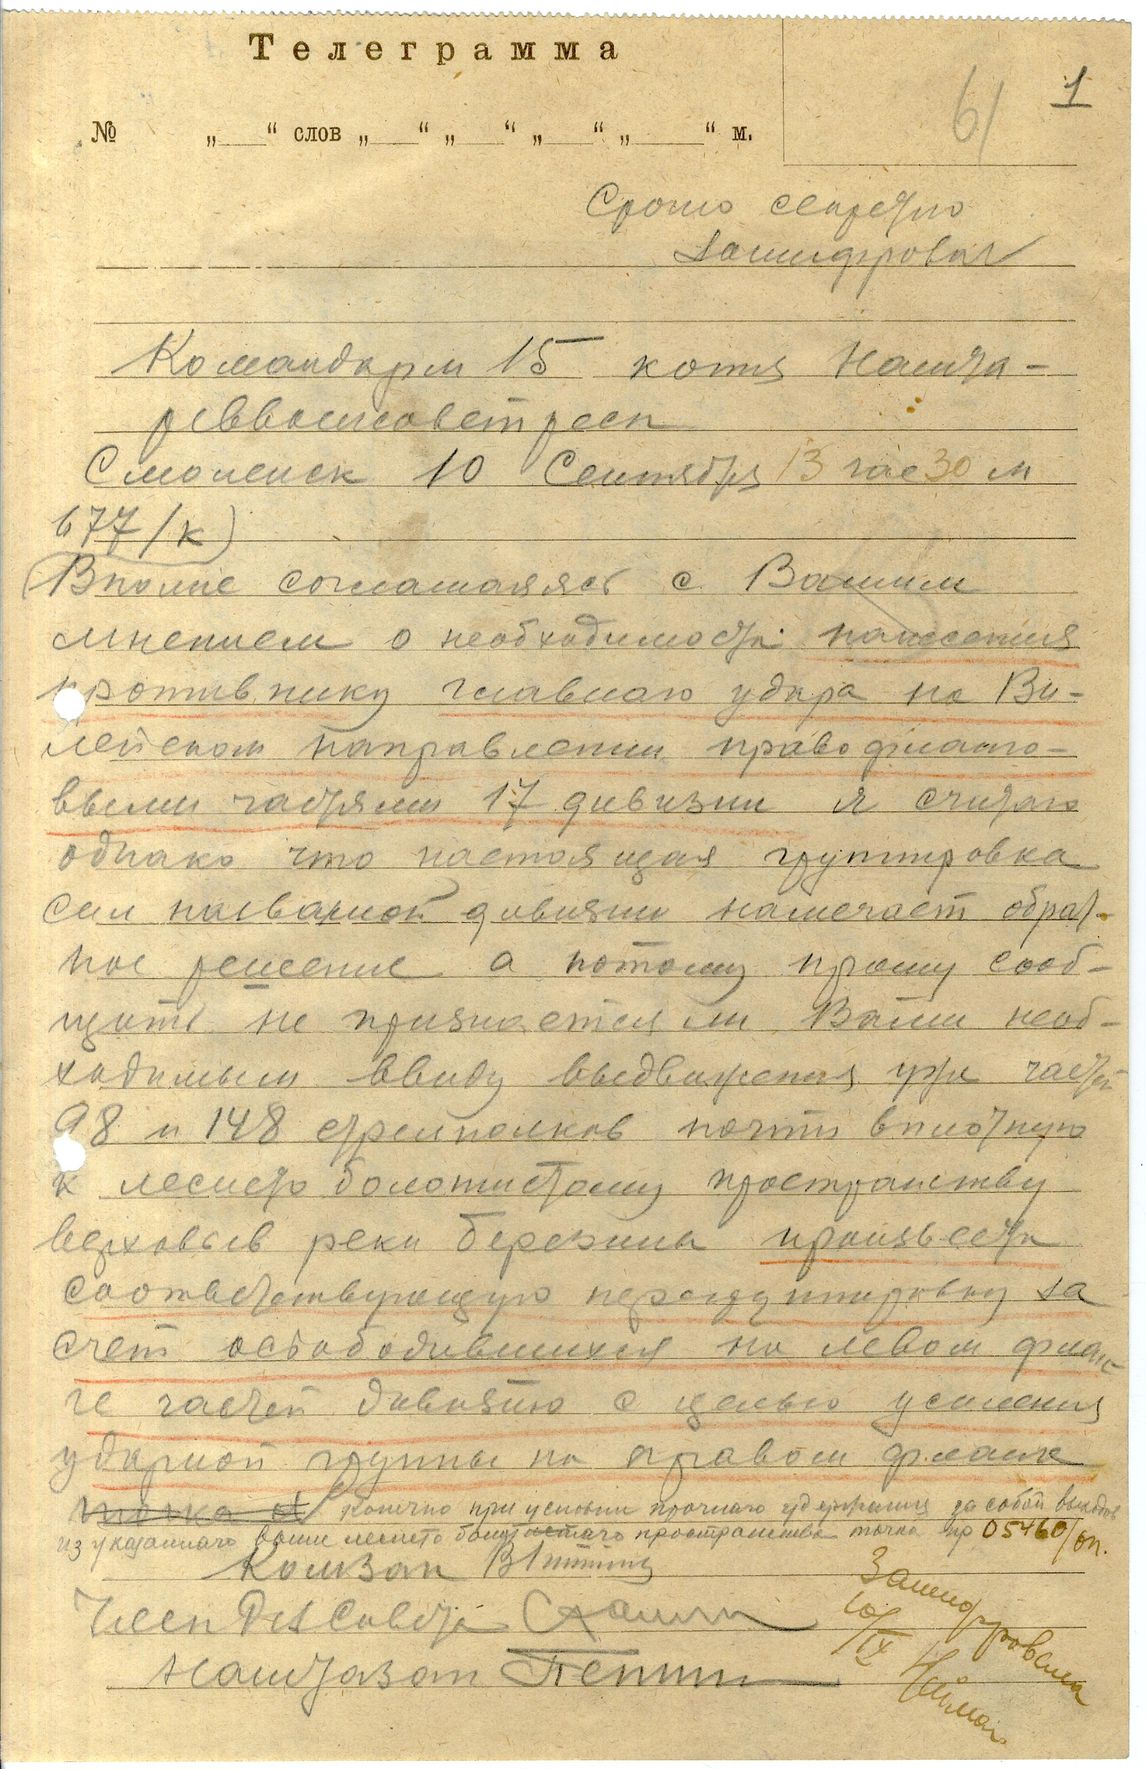 Телеграмма
61 1
№ „ “ слов „ “ „ “ „ “ „ “ м.
Срочно секретно
Зашифровать
Командарм 15 копия Наштa-
реввоенсовет респ
Смоленск 10 Сентября 13 час 30 м
677/к)
Вполне соглашаяясь с Вашим
мнением о необходимости нанесения
противнику главнаго удара на Ви-
лейском направлении правофланго-
выми частями 17 дивизии я считаю
однако что настоящая группировка
сил названной дивизии намечает обрат-
ное решение а потому прошу сооб-
щить не признается ли Вами необ-
ходимым ввиду выдвижения уже частей
98 и 148 стрелполков почти вплотную
к лесисто болотистому пространству
верховьев реки Березины произвести
соответствующую перегруппировку за
счет освободившихся на левом флан-
ге частей дивизии с целью усиления
ударной группы на правом фланге
точка конечно при условии прочнаго удержания за собой выходов
из указаннаго выше лесисто болотистаго пространства точка нр 05460/оп.
Комзап Гиттис
Член РевСовета Сталин
Наштазап Петин
Зашифрована
10/IX